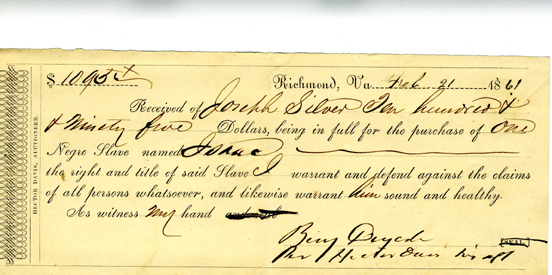 $ 1095
Richmond, Va. Feb 21 1861
Received of Joseph Silver Ten hundred &
& Ninety five Dollars, being in full for the purchase of One
Negro Slave named Isaac
the right and title of said Slave I warrant and defend against the claims
of all persons whatsoever, and likewise warrant him sound and healthy.
As witness my hand and seal
Benj
Per Hector Davis his agt
SEAL
HECTOR DAVIS, AUCTIONEER.